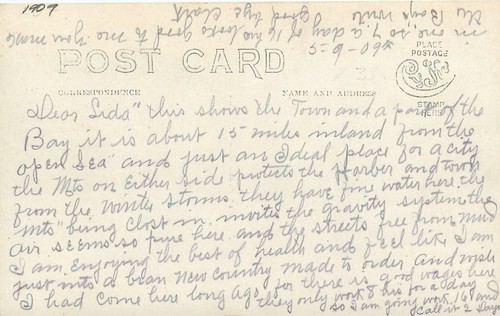 1909
5-9-09
POST CARD
CORRESPONDENCE
NAME AND ADDRESS
PLACE
POSTAGE
STAMP
HERE
Dear Sida" this shows the Town and a part of the
Bay it is about 15 miles inland from the
open Sea" and just an Ideal place for a city
the Mts on Either side protects the Harber and town
from the Winter Storms. they have fine water here. the
Mts" being Clost in. invites the Gravity system the
air seems so pure here. and the streets free from mud
I am Enjoying the best of health and feel like I am
just into a bran New Country made to order and wish
I had come here long ago, for there is good wages here
they only work 8 hrs for a day
so I am going work 16 and
Call it 2 days